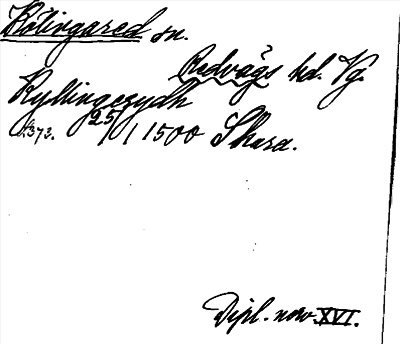 Kölingared sn.
Redvägs hd. Vg.
Kyllingerydh
1373. 25/1 1500 Skara.
Dipl. norv. XVI.